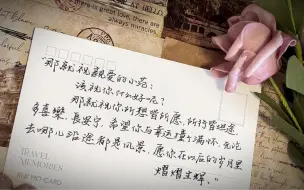 great love, there are
always miracles.
“那就祝亲爱的小范:
该祝你什么好呢?
那就祝你所想皆所愿,所行皆坦途
多喜乐,长安宁,希望你与幸运撞个满怀,无论
去哪儿沿途都是风景,愿你在以后的岁月里
熠熠生辉。”
TRAVEL
MEMORIES
POSTCARD